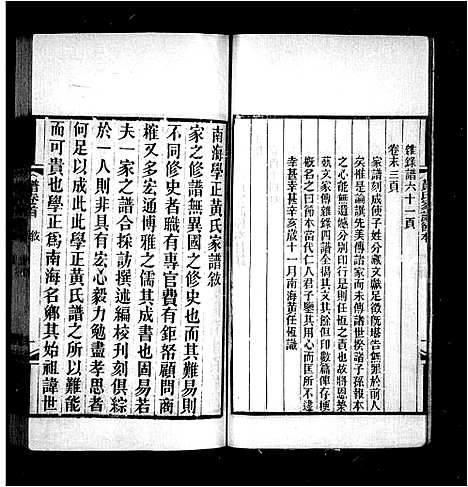 雜錄譜六十一頁
卷末三頁
家譜刻成使子姓分藏文獻足徵既堪告無罪于厥
矣惟是論讚先芬譜諸家而未傳諸世揆諸子孫報本
之心能無遺憾分別印行是則任恆之責也故將恩榮
藝文家傳雜錄四譜倡其文其餘但印數篇俾存梗
概名之曰節本當代仁人君子鑒其心而匡所不逮
幸甚幸甚辛亥歲十一月南海黃任恆識
南海學正黃氏家譜敘
家之修譜無異國之修史也而其難易則
不同修史者職有專官費有鉅帑顧問商
榷又多通博雅之儒其成書也固易若
夫一家之譜合採訪撰述編校刊刻俱綜
於一人則非具有宏心毅力勉盡孝思者
何足以成此此學正黃氏譜之所以難能
而可貴也學正為南海名鄉其始祖諱世
譜卷首 敘